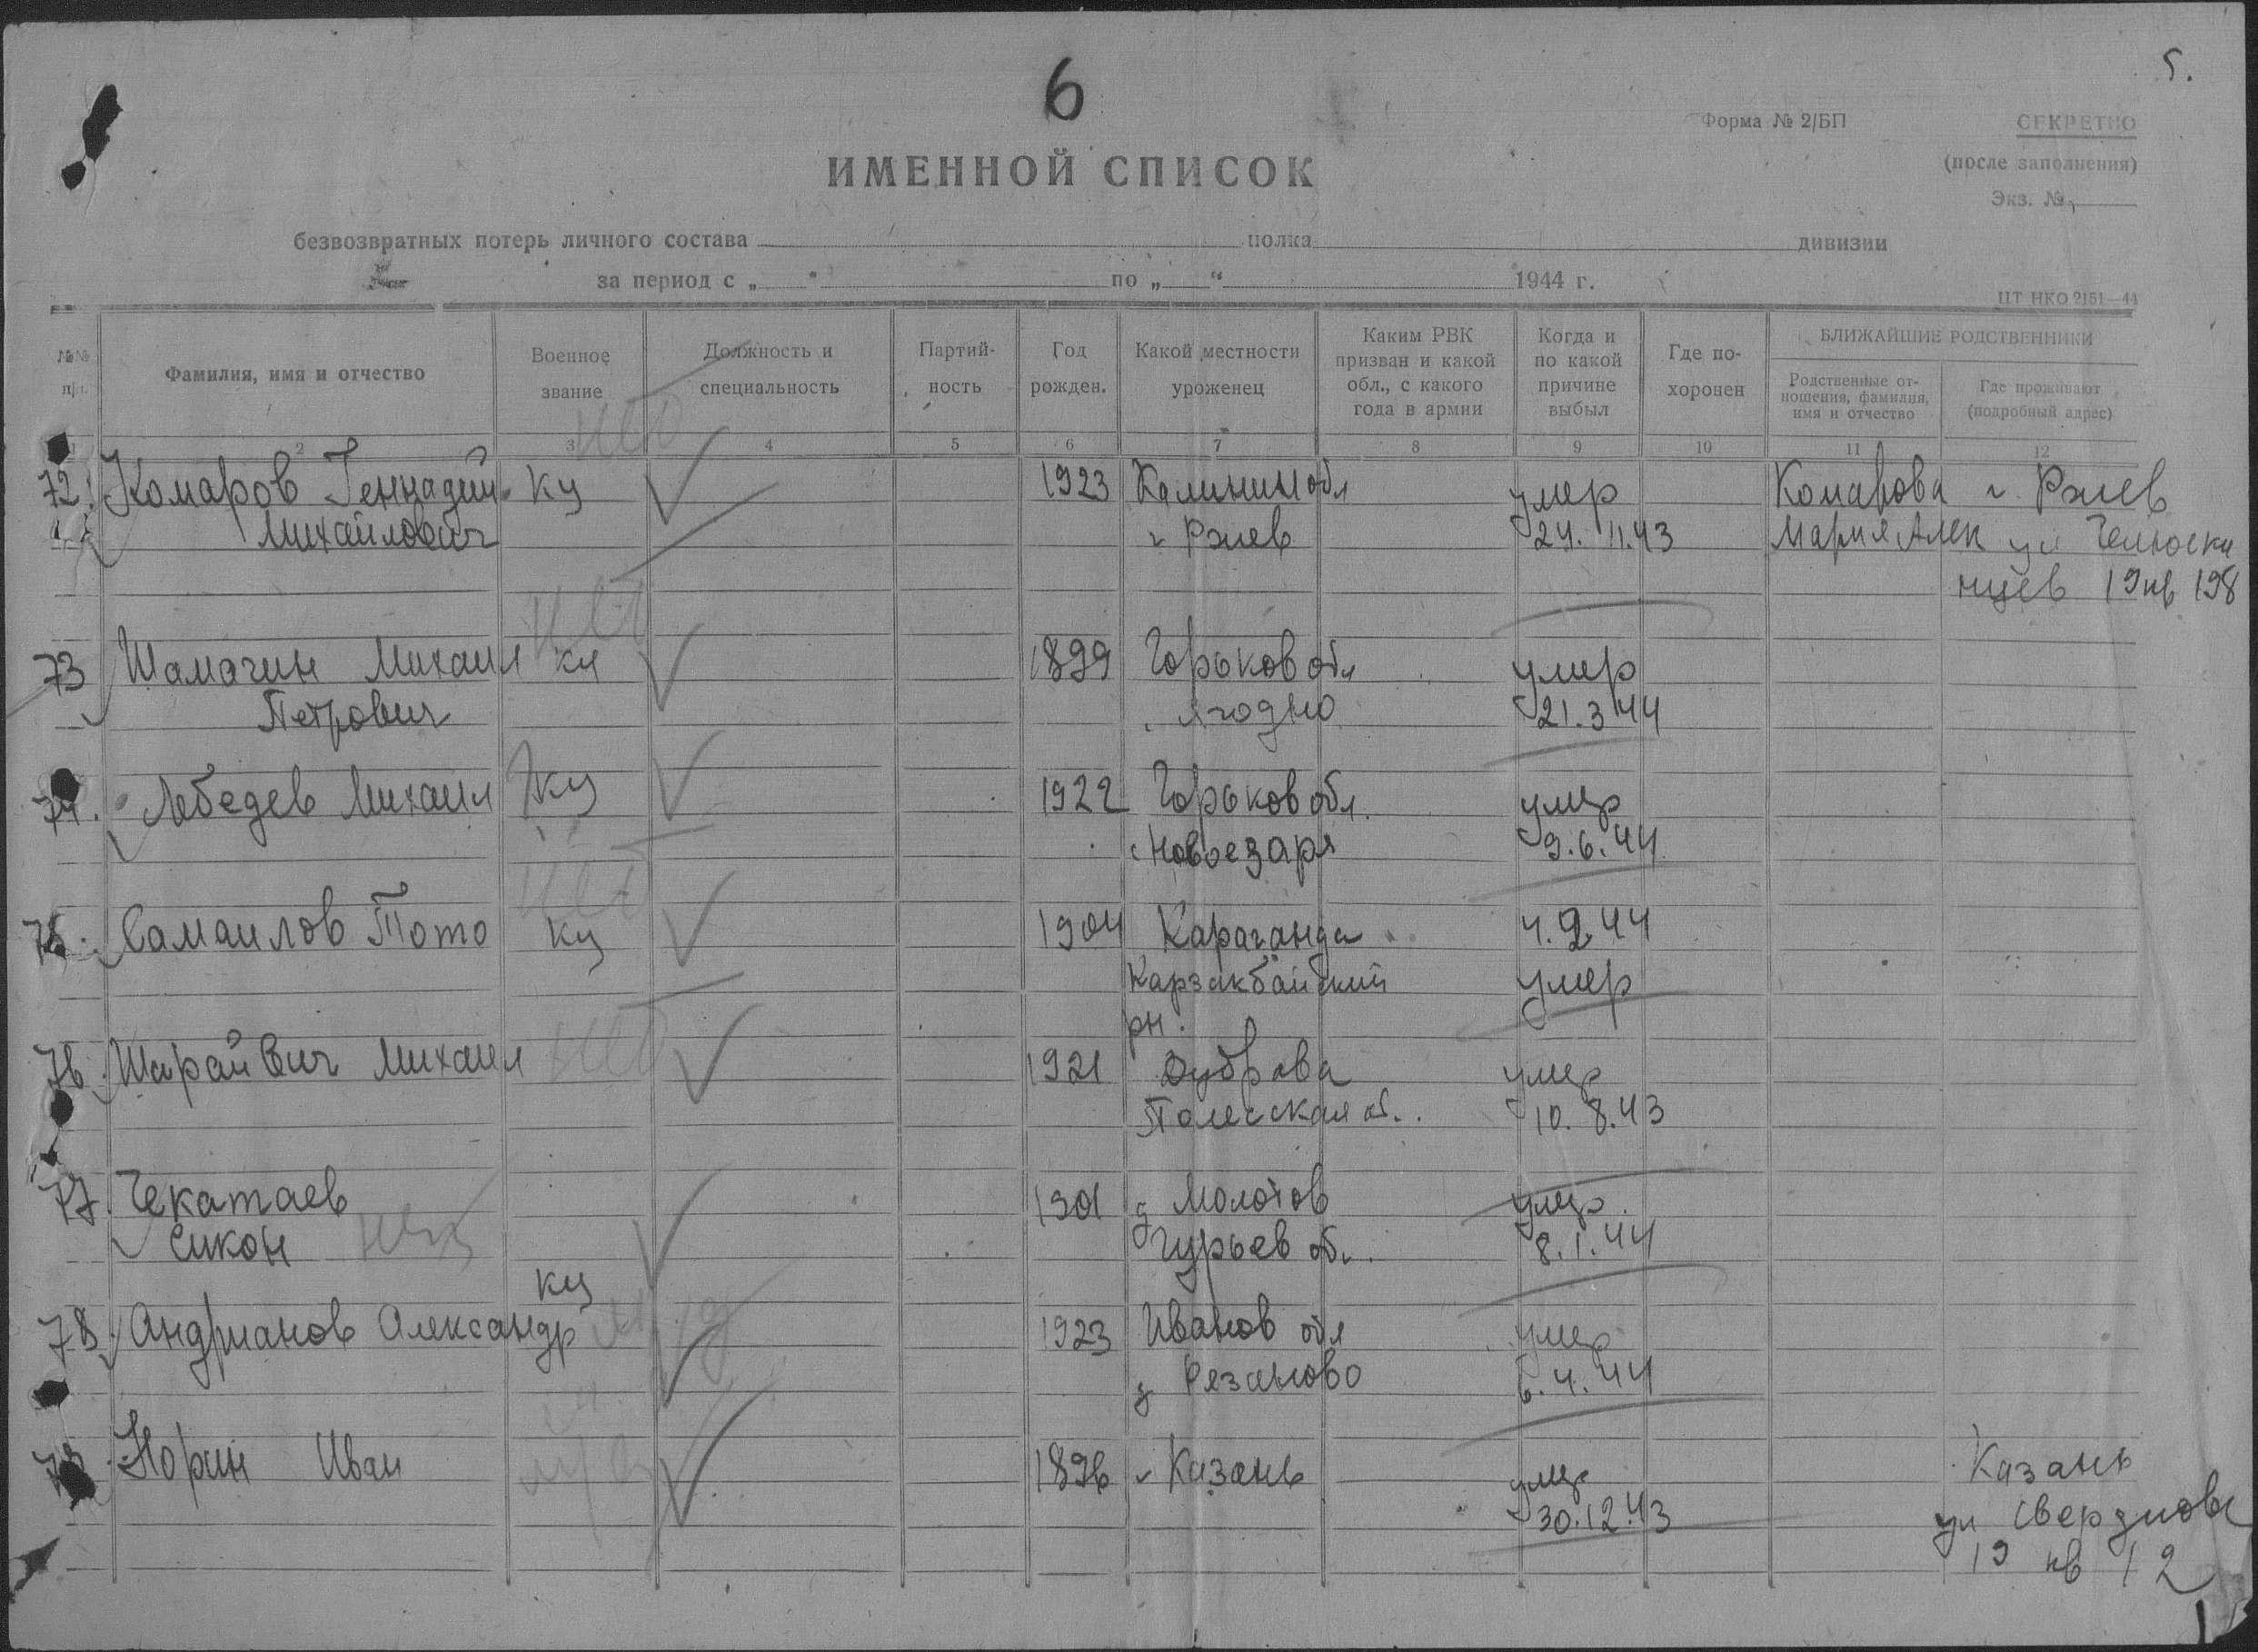 6
5.
Форма № 2/БП
СЕКРЕТНО
(после заполнения)
Экз. №
ИМЕННОЙ СПИСОК
безвозвратных потерь личного состава полка дивизии
за период с „ “ по „ “ 1944 г.
ЦТ НКО 2151—44
№№ п/п.
Фамилия, имя и отчество
Военное звание
Должность и специальность
Партий-ность
Год рожден.
Какой местности уроженец
Каким РВК призван и какой обл., с какого года в армии
Когда и по какой причине выбыл
Где по-хоронен
БЛИЖАЙШИЕ РОДСТВЕННИКИ
Родственные от-ношения, фамилия, имя и отчество
Где проживают (подробный адрес)
2 3 4 5 6 7 8 9 10 11 12
72. Комаров Геннадий кц 1923 Калинин обл умер Комарова г. Ржев
Михайлович г Ржев 24. 11.43 Мария Алек ул Челюски
нцев 19 кв 198
73 Шамагин Михаил кц 1899 Горьков обл умер
Петрович с Ягодно 21.3 44
74. Лебедев Михаил кц 1922 Горьков обл. умер
с Новоезаря 9.6.44
75. Самаилов Тото кц 1904 Караганда 4.9.44
Карзакбайский умер
рн.
76. Шарайвич Михаил 1921 Дубрава умер
Полесская об. 10. 8.43
77. Чекатаев 1901 д Молотов умер
Сикон Гурьев об. 8.1.44
кц
78. Андрианов Александр 1923 Иванов обл умер
д Резаново 6.4.44
79. Норин Иван 1896 г Казань умер Казань
30.12.43 ул Свердлова
19 кв 12